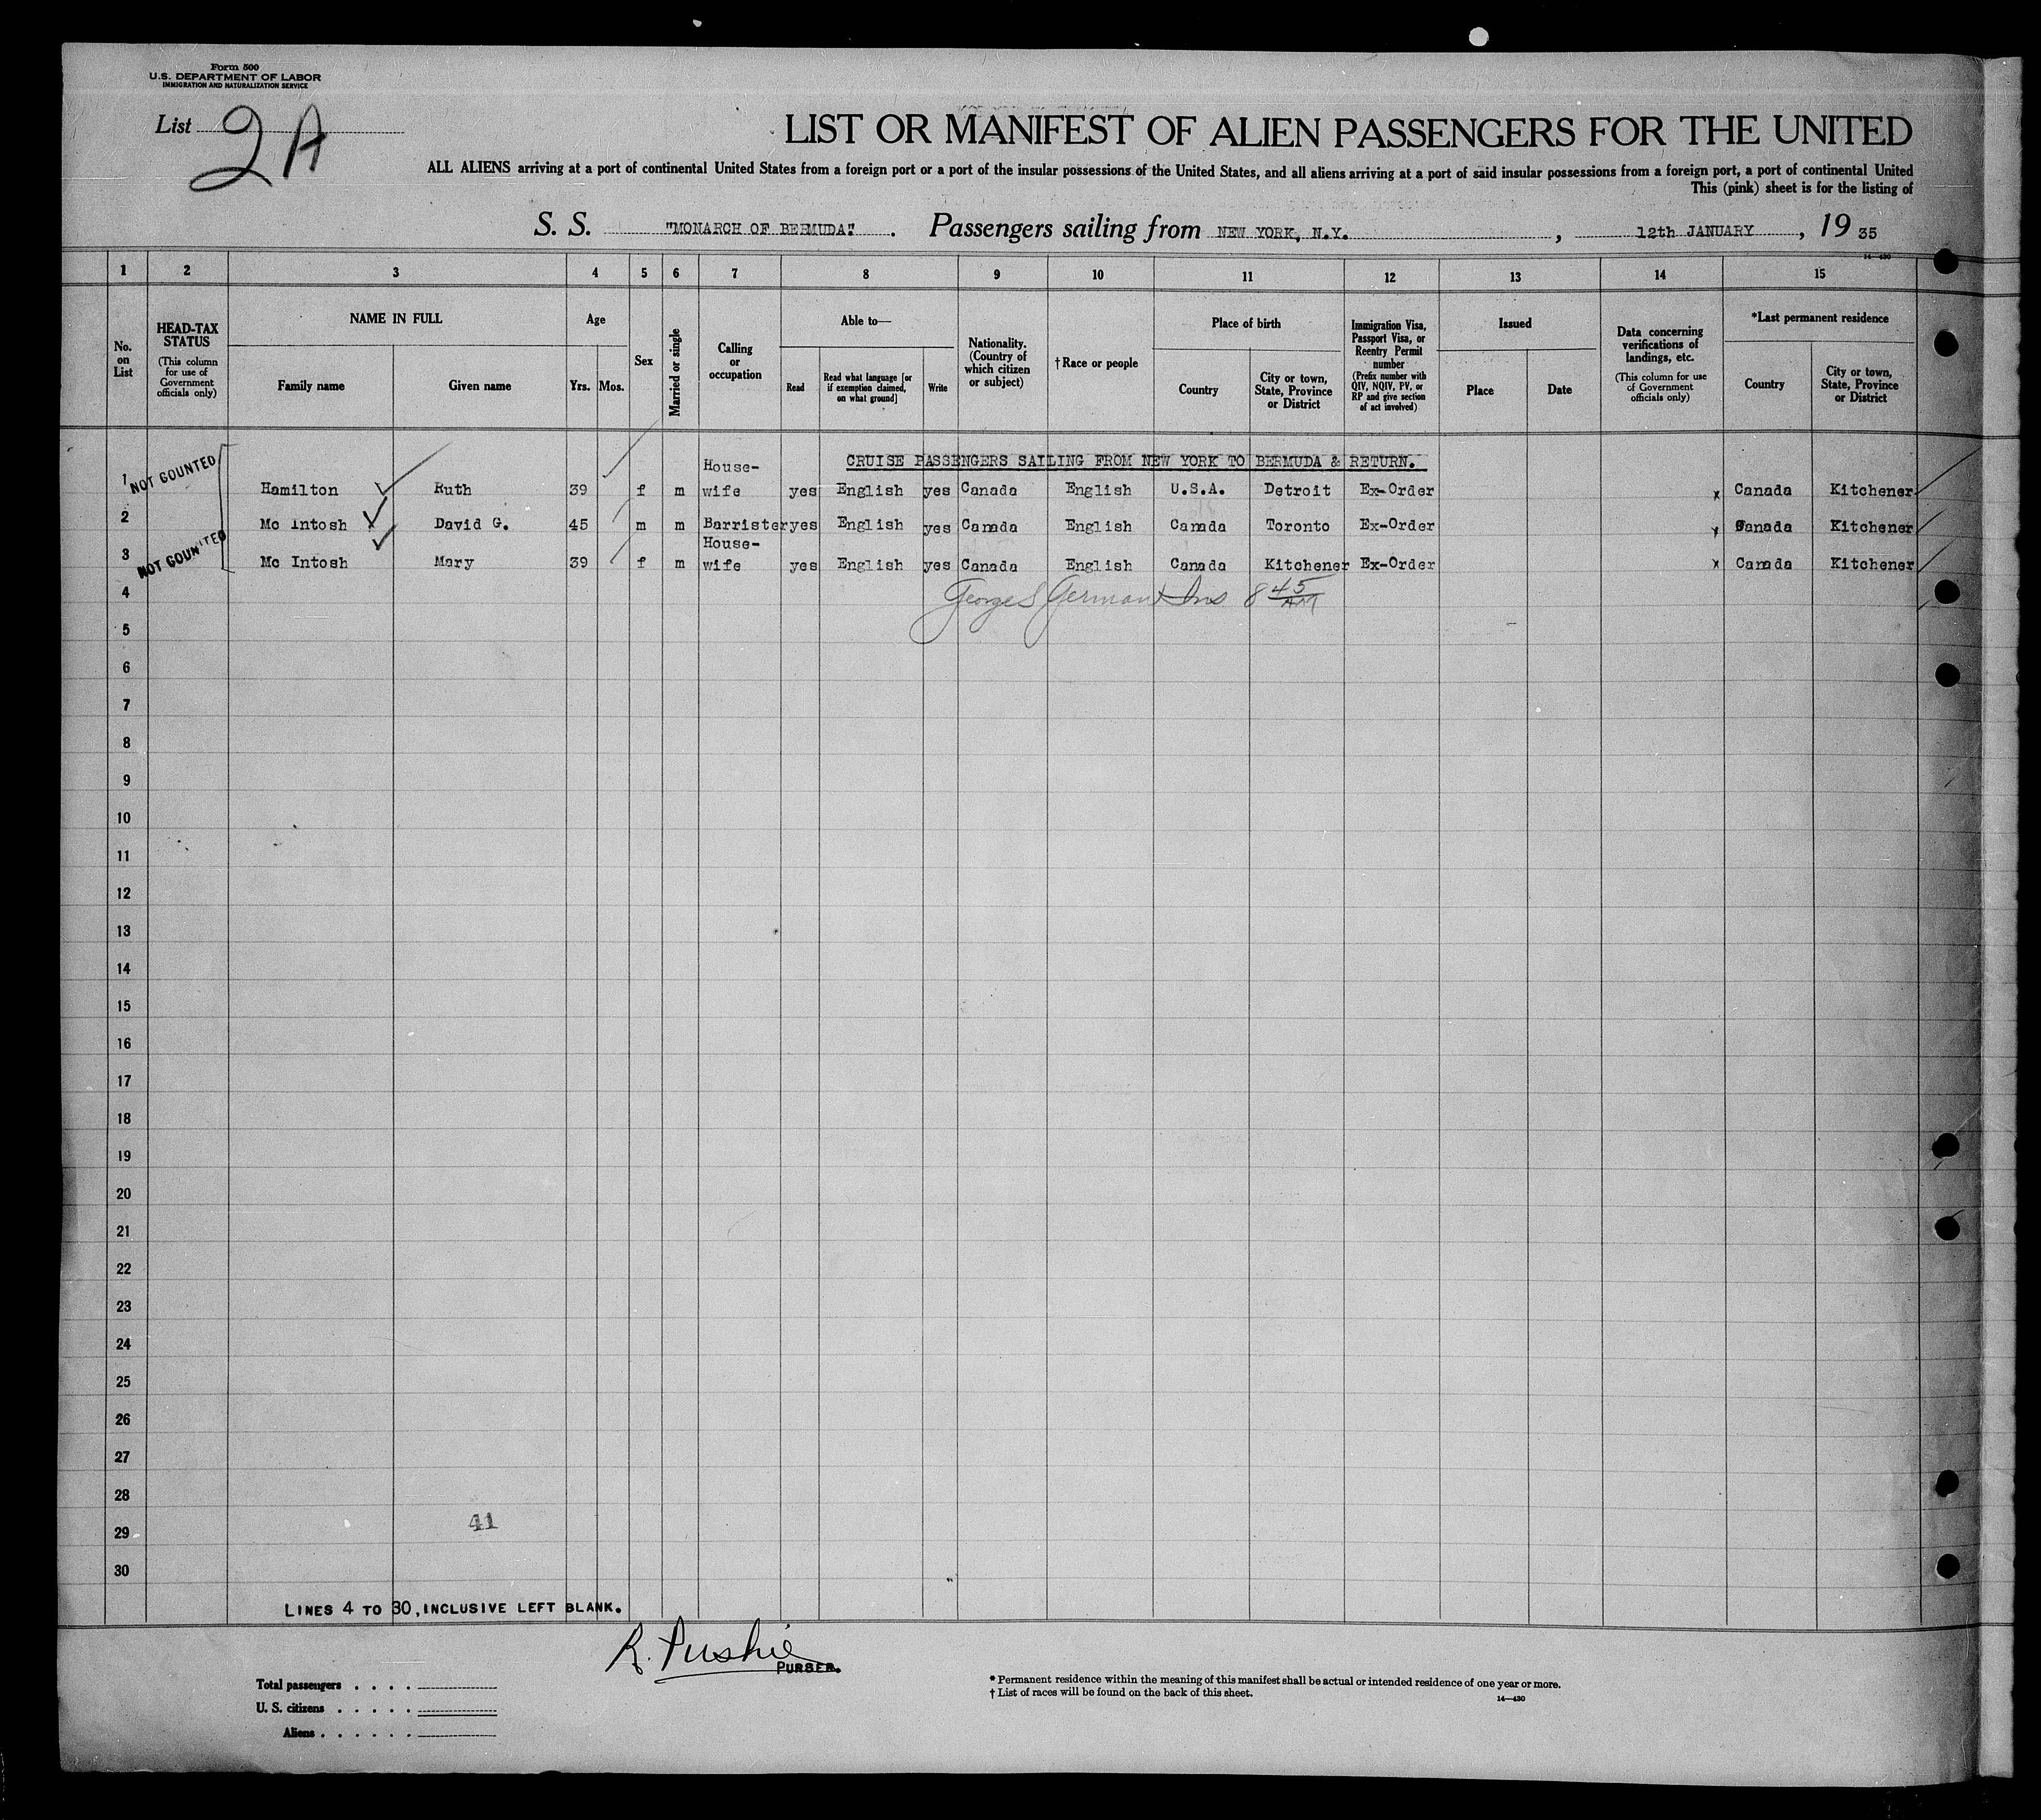 Form 500
U.S. DEPARTMENT OF LABOR
IMMIGRATION AND NATURALIZATION SERVICE
List 2A
LIST OR MANIFEST OF ALIEN PASSENGERS FOR THE UNITED
ALL ALIENS arriving at a port of continental United States from a foreign port or a port of the insular possessions of the United States, and all aliens arriving at a port of said insular possessions from a foreign port, a port of continental United
This (pink) sheet is for the listing of
S. S. "MONARCH OF BERMUDA". Passengers sailing from NEW YORK, N.Y. , 12th JANUARY , 19 35
14—430
1 2 3 4 5 6 7 8 9 10 11 12 13 14 15
No. on List
HEAD-TAX STATUS (This column for use of Government officials only)
NAME IN FULL
Family name Given name
Age
Yrs. Mos.
Sex
Married or single
Calling or occupation
Able to—
Read Read what language [or if exemption claimed, on what ground] Write
Nationality. (Country of which citizen or subject)
†Race or people
Place of birth
Country City or town, State, Province or District
Immigration Visa, Passport Visa, or Reentry Permit number (Prefix number with QIV, NQIV, PV, or RP and give section of act involved)
Issued
Place Date
Data concerning verifications of landings, etc. (This column for use of Government officials only)
*Last permanent residence
Country City or town, State, Province or District
CRUISE PASSENGERS SAILING FROM NEW YORK TO BERMUDA & RETURN.
NOT COUNTED
1 Hamilton Ruth 39 f m House-wife yes English yes Canada English U.S.A. Detroit Ex-Order x Canada Kitchener
2 Mc Intosh David G. 45 m m Barrister yes English yes Canada English Canada Toronto Ex-Order x Canada Kitchener
NOT COUNTED
3 Mc Intosh Mary 39 f m House-wife yes English yes Canada English Canada Kitchener Ex-Order x Canada Kitchener
4 George S German Ins 8 45 AM
5
6
7
8
9
10
11
12
13
14
15
16
17
18
19
20
21
22
23
24
25
26
27
28
41
29
30
LINES 4 TO 30, INCLUSIVE LEFT BLANK.
R. Pushie
PURSER.
Total passengers . . . .
U. S. citizens . . . . .
Aliens . . . . . .
* Permanent residence within the meaning of this manifest shall be actual or intended residence of one year or more.
† List of races will be found on the back of this sheet.
14—430